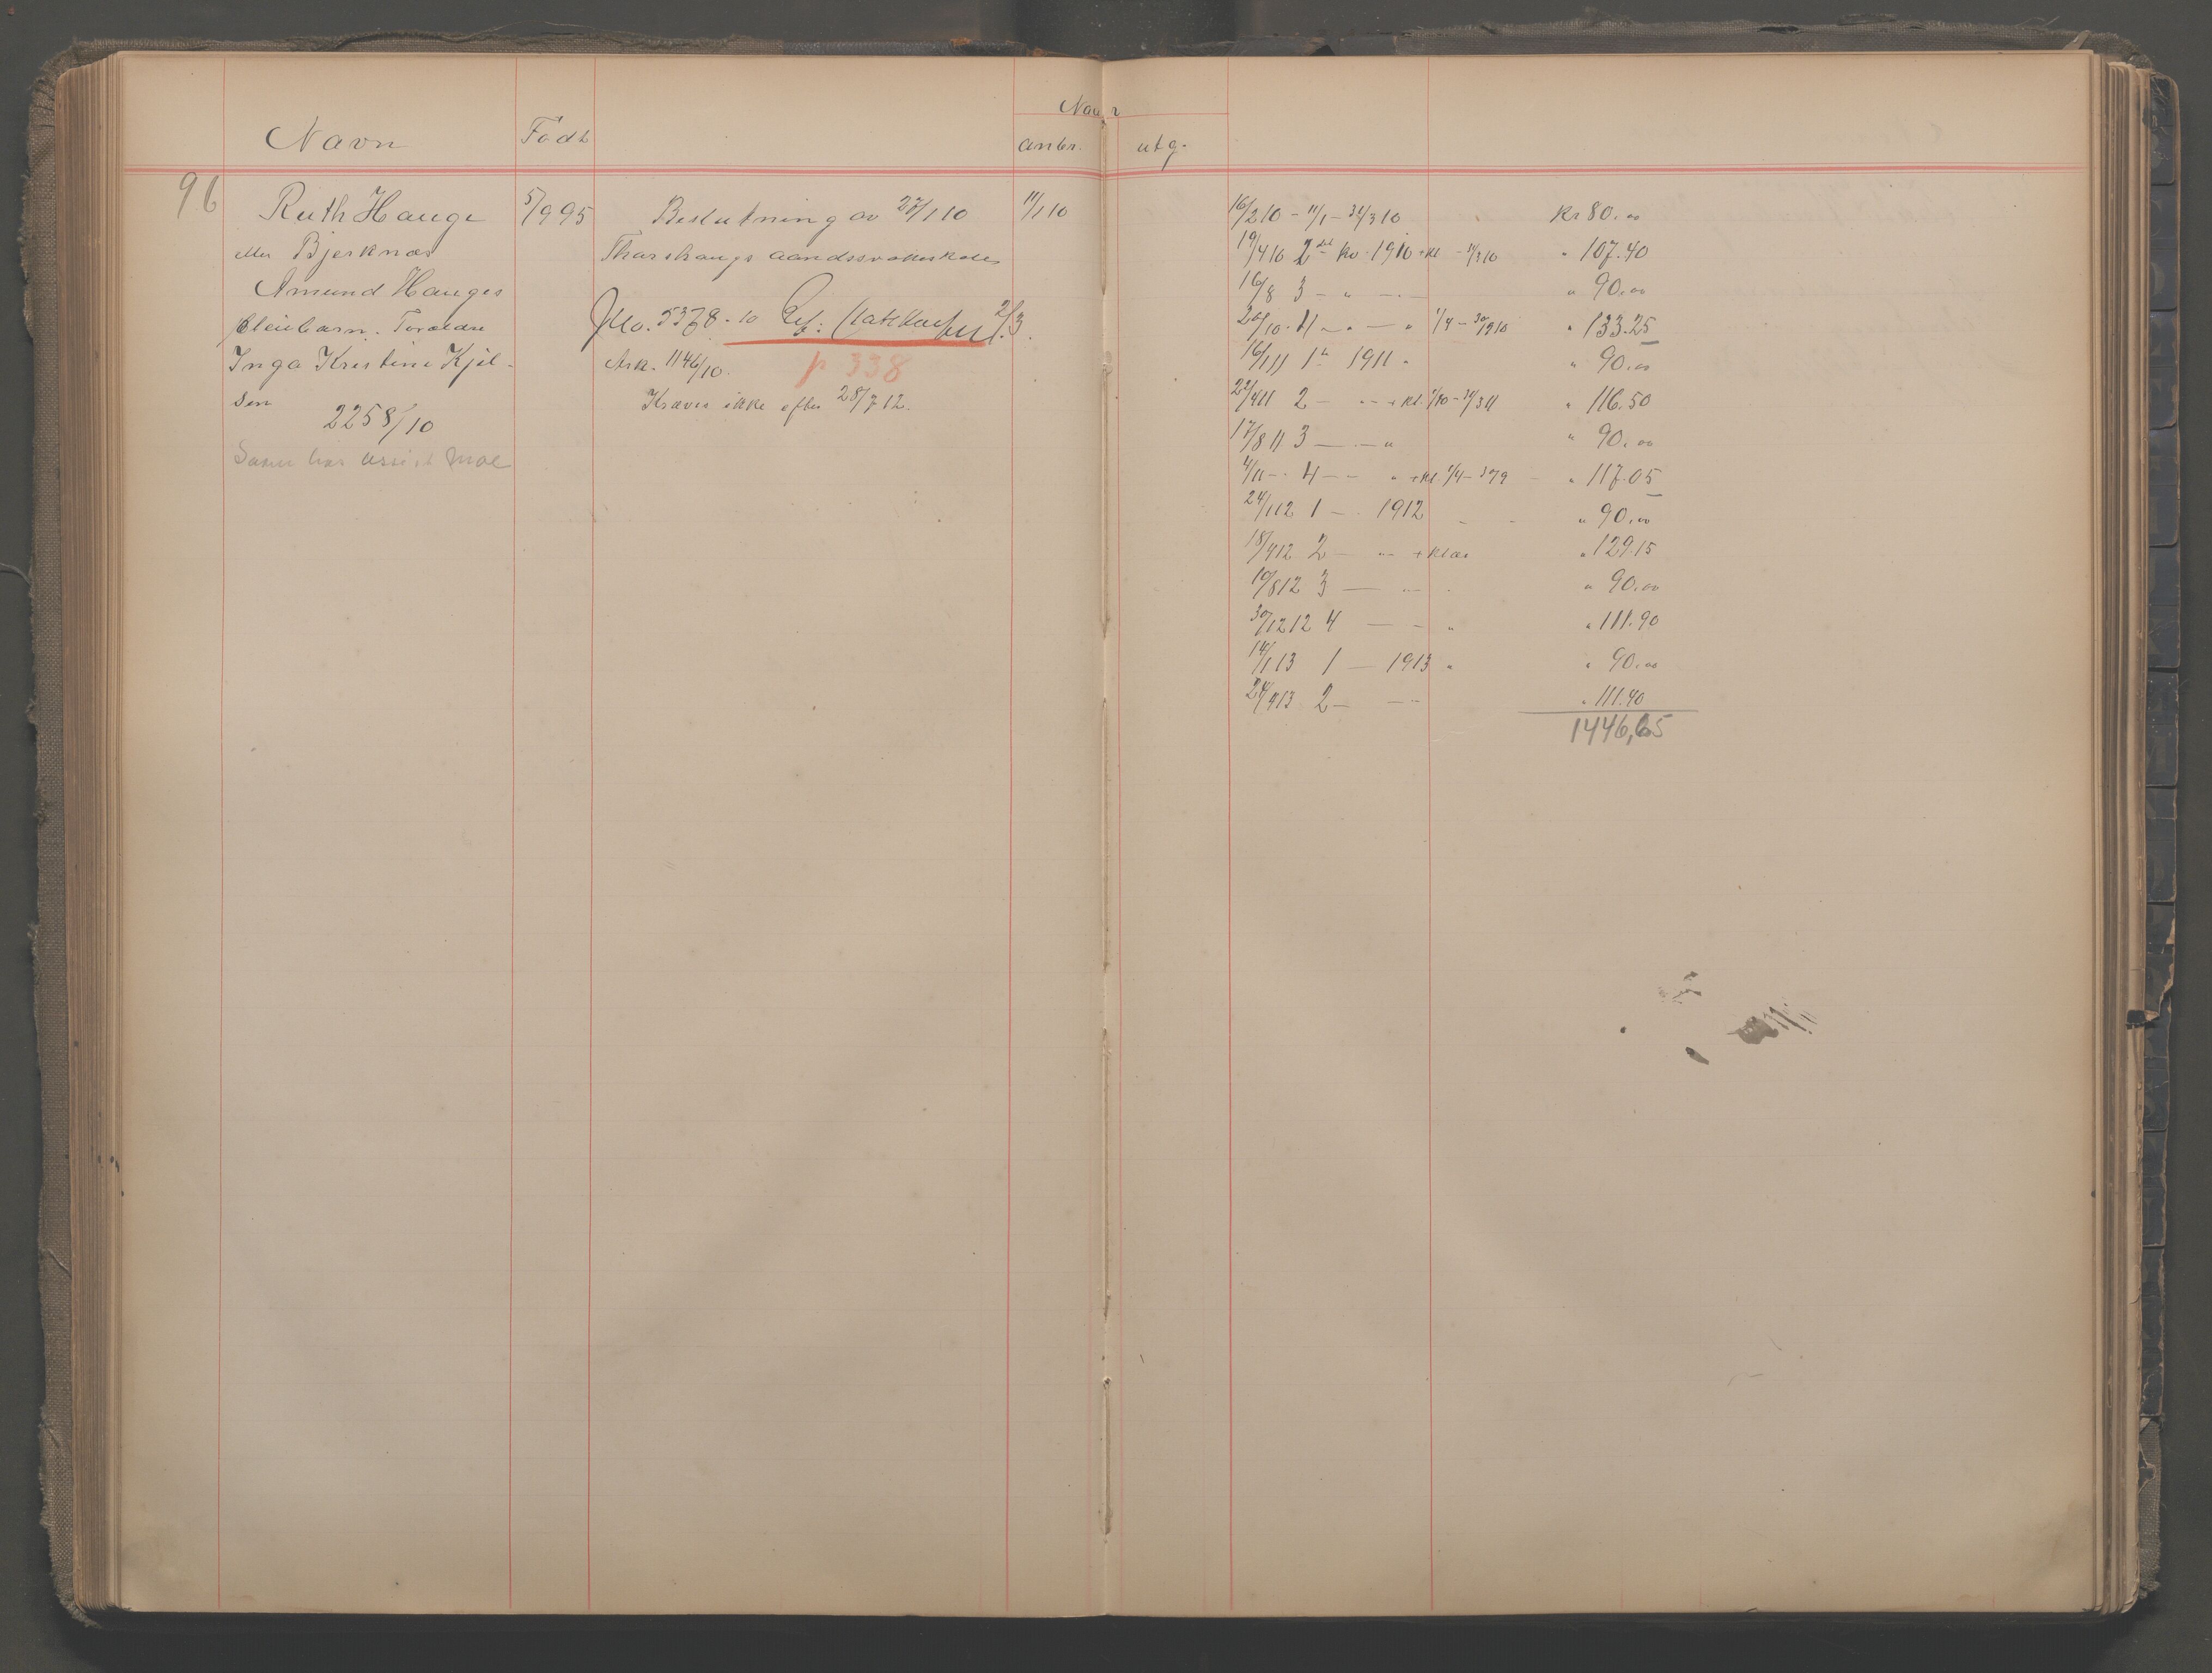 Naar
Navn Født anbr. utg.
96 Ruth Hauge 5/9 95 Beslutning av 27/1 10 11/1 10
eller Bjerknæs Thorshaugs aandssvakeskole
Amund Hauges
pleiebarn. Forældre Jno. 5378-10 2/3
Inga Kristine Kjel- Ark. 1146/10. p 338
sen Kræves ikke efter 28/7 12.
2258/10
Saken hos assist Moe
16/2 10 - 11/1 - 31/3 10 Kr 80.00
19/4 10 2det kv. 1910 + kl - 31/3 10 " 107.40
16/8 3 - " - " 90.00
20/10 . 4 - " - " 1/4 - 30/9 10 " 133.25
16/1 11 1te 1911 " 90.00
22/4 11 2 - " + kl. 1/10 - 31/3 11 " 116.50
17/8 11 3 - " " 90.00
4/11 - 4 - - " + kl. 1/4 - 30/9 " 117.05
24/1 12 1 - 1912 " 90.00
18/4 12 2 - " + klær " 129.15
19/8 12 3 - " " 90.00
30/12 12 4 - - " " 111.90
14/1 13 1 - 1913 " " 90.00
24/4 13 2 - - " " 111.40
1446,65